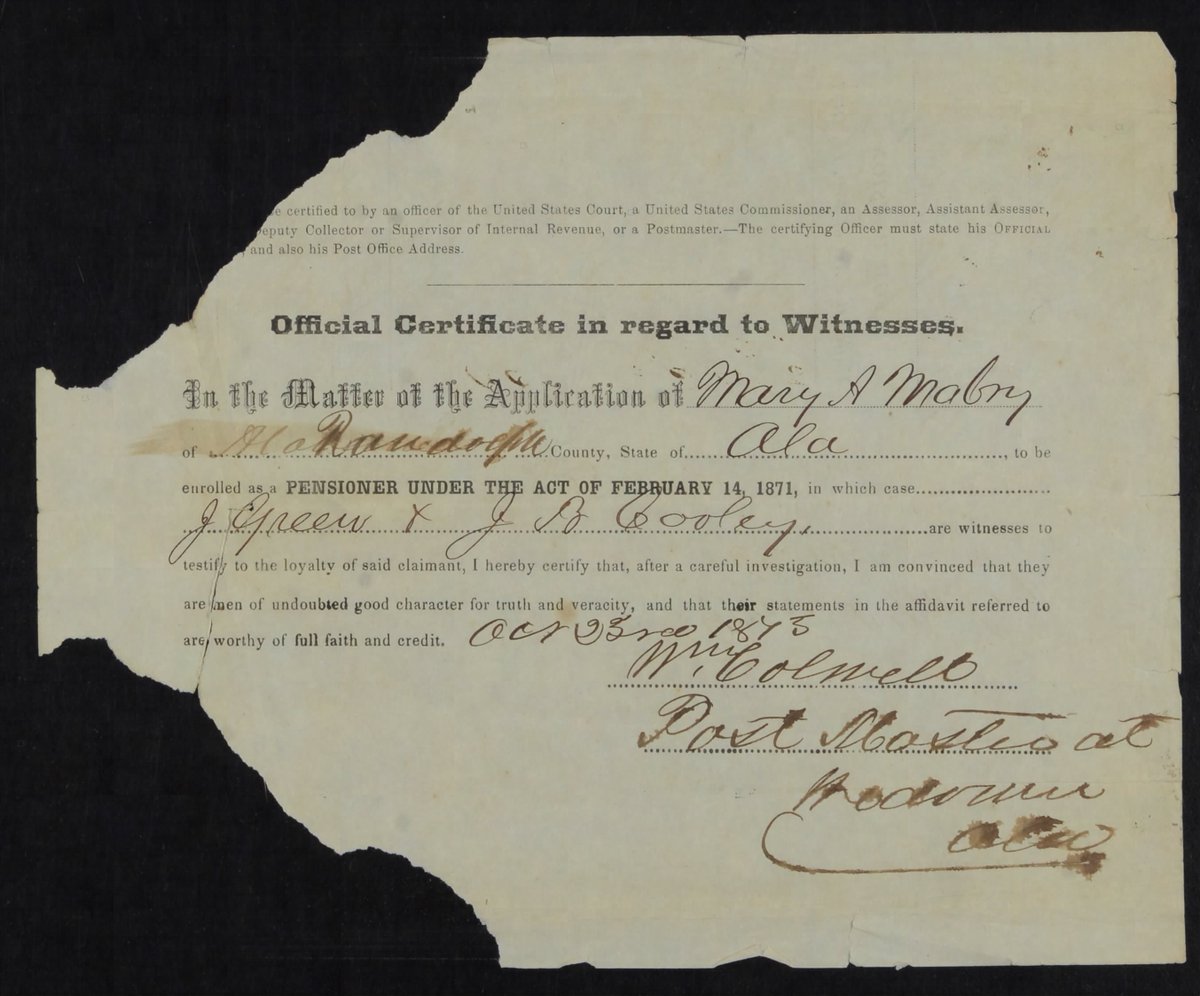 e certified to by an officer of the United States Court, a United States Commissioner, an Assessor, Assistant Assessor,
eputy Collector or Supervisor of Internal Revenue, or a Postmaster.—The certifying Officer must state his OFFICIAL
and also his Post Office Address.
Official Certificate in regard to Witnesses.
In the Matter of the Application of Mary A Mabry
of Randolph County, State of Ala, to be
enrolled as a PENSIONER UNDER THE ACT OF FEBRUARY 14, 1871, in which case
J Green & J B Cooley, are witnesses to
testify to the loyalty of said claimant, I hereby certify that, after a careful investigation, I am convinced that they
are men of undoubted good character for truth and veracity, and that their statements in the affidavit referred to
are worthy of full faith and credit. Oct 23rd 1873
Wm Colwell
Post Master at
Ala